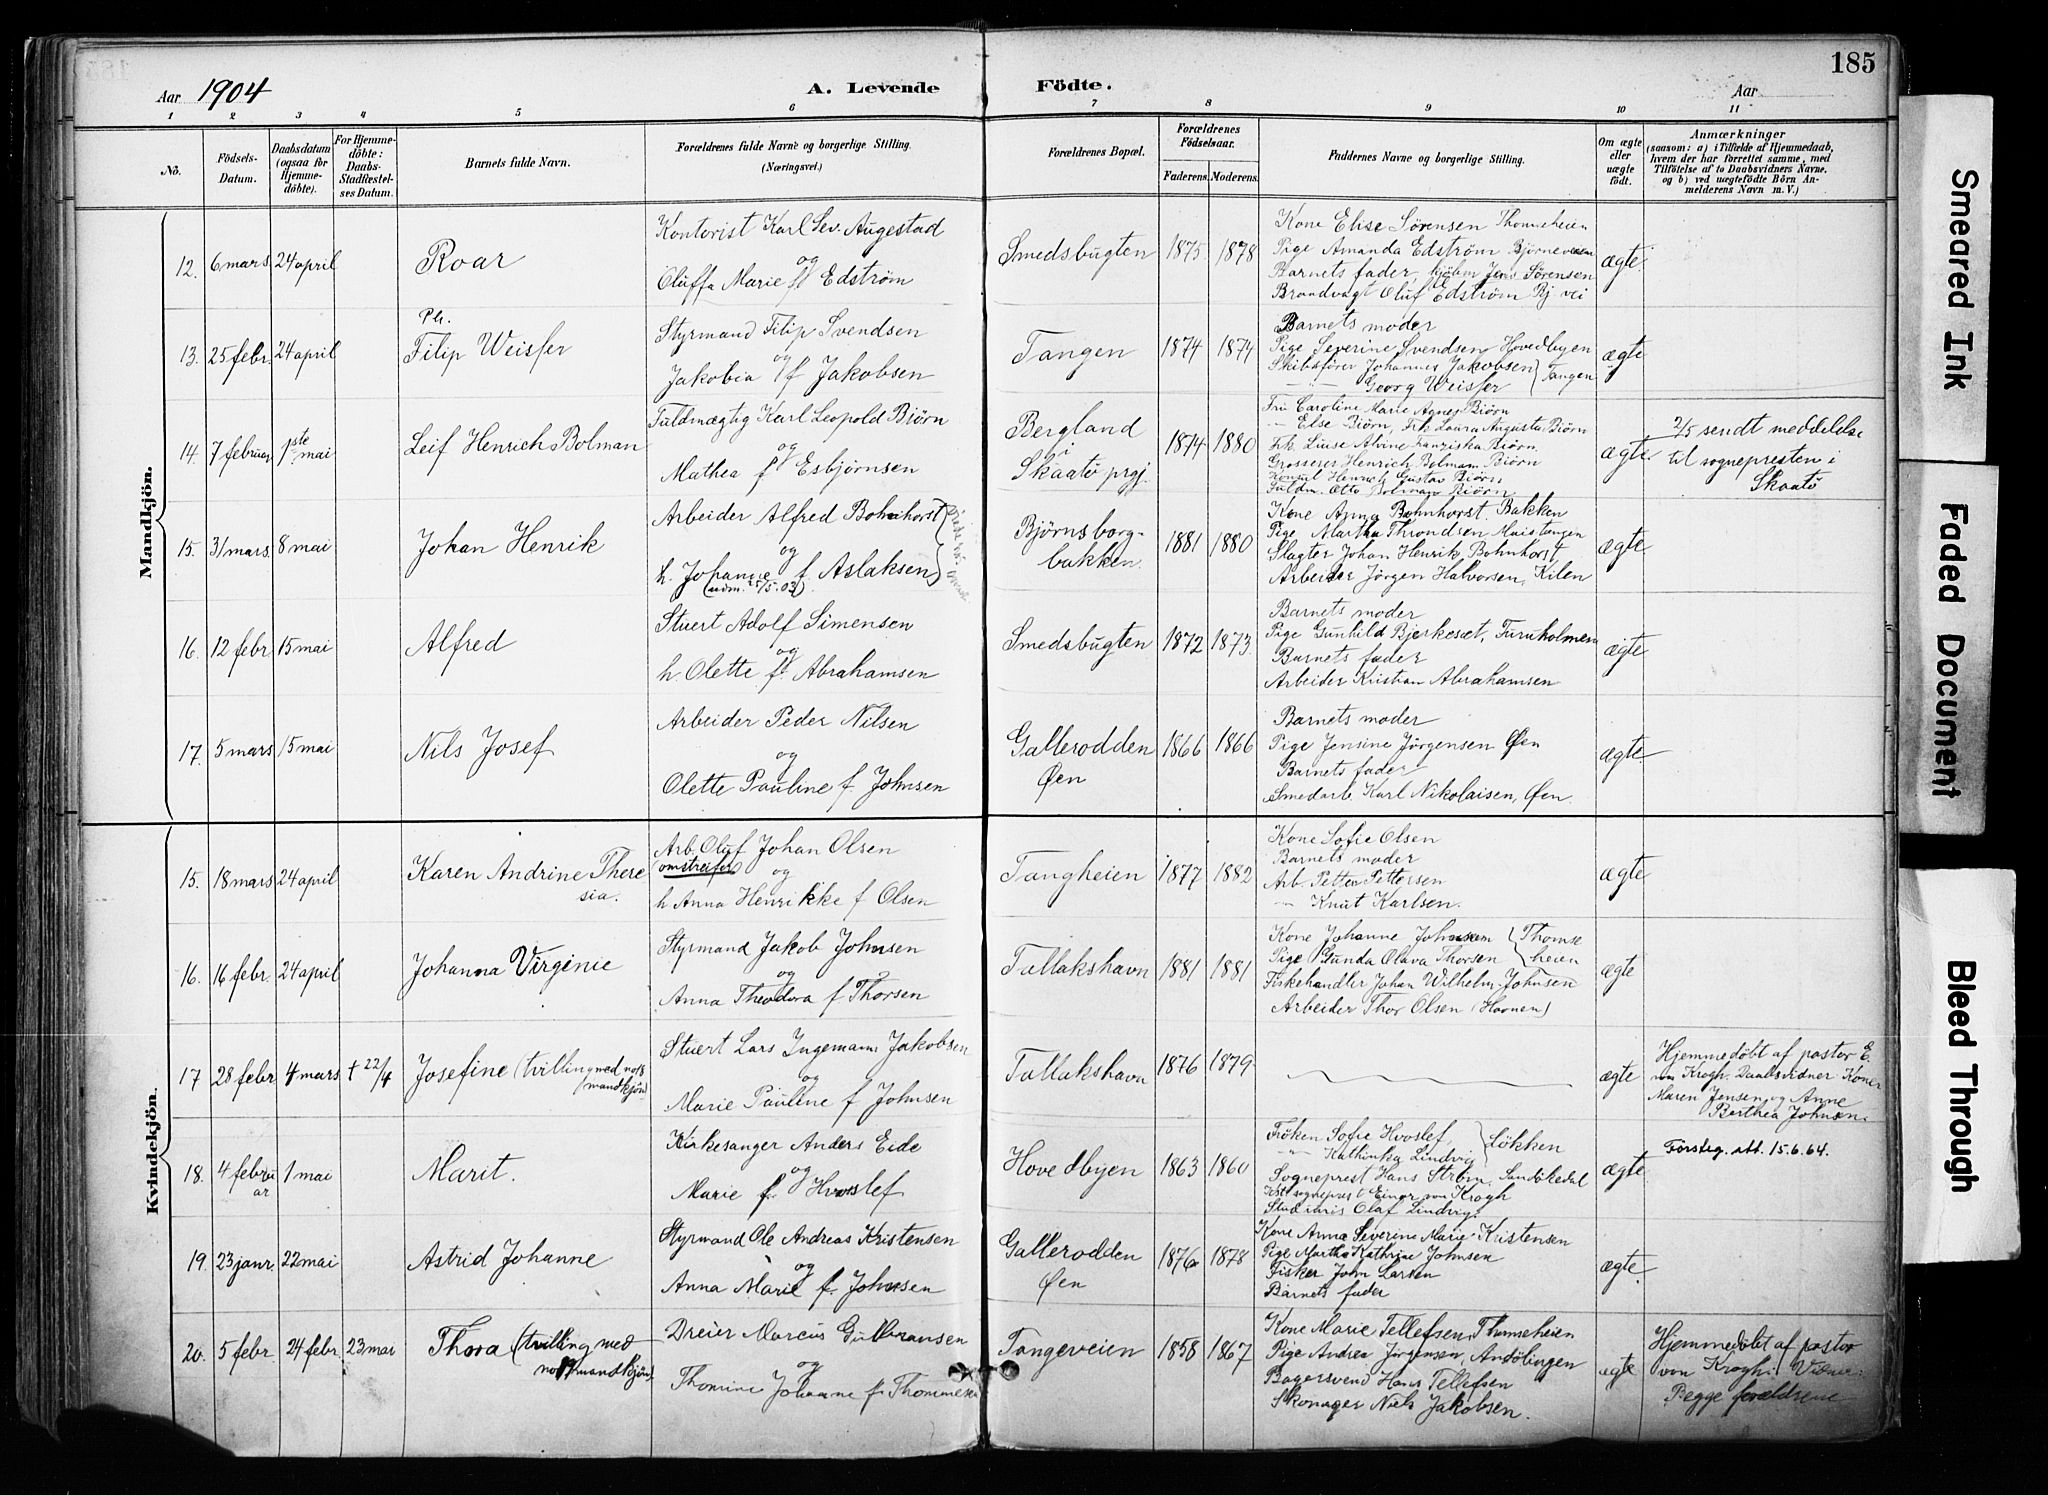 185
Aar 1904
A. Levende
Födte.
Aar
1 2 3 4 5 6 7 8 9 10 11
No.
Födsels-
Datum.
Daabsdatum
(ogsaa for
Hjemme-
döbte).
For Hjemme-
döbte:
Daabs-
Stadfæstel-
ses Datum.
Barnets fulde Navn.
Forældrenes fulde Navne og borgerlige Stilling.
(Næringsvei.)
Forældrenes Bopæl.
Forældrenes
Födselsaar.
Faderens. Moderens.
Faddernes Navne og borgerlige Stilling.
Om ægte
eller
uægte
födt.
Anmærkninger
(saasom: a) i Tilfælde af Hjemmedaab,
hvem der har forrettet samme, med
Tilföielse af to Daabsvidners Navne,
og b) ved uægtefödte Börn An-
melderens Navn m. V.)
Mandkjön.
12. 6 mars 24 april
Roar
Kontorist Karl Sev. Augestad
og
Oluffa Marie f. Edström
Smedsbugten 1875 1878
Kone Elise Sørensen Thomseheien
Pige Amanda Edström Bjørneveien
Barnets fader, kjöbm Jens Sörensen
Brandvagt Oluf Edström Bj vei
ægte
13. 25 febr. 24 april
Ph.
Filip Weisser
Styrmand Filip Svendsen
og
Jakobia f Jakobsen
Tangen 1874 1874
Barnets moder
Pige Severine Svendsen Hovedbyen
Skibsfører Johannes Jakobsen
Georg Weisser
Tangen
ægte
14. 7 februar 1ste mai
Leif Henrich Bolman
Fuldmægtig Karl Leopold Biörn
og
Mathea f Esbjörnsen
Bergland
i
Skaatö prgj.
1874 1880
Fru Caroline Marie Agnes Biörn
— Else Biörn, Frk Laura Augusta Biörn
Frk. Luise Alvine Franziska Biörn
Grosserer Henrich Bolman Biörn
Konsul Henrich Gustav Biörn
Fuldm. Otto Bolman Biörn
ægte
2/5 sendt meddelelse
til sognepresten i
Skaatö
15. 31 mars 8 mai
Johan Henrik
Arbeider Alfred Bohnhorst
og
h. Johanne f. Aslaksen
Björnsborg-
bakken.
1881 1880
Kone Anna Bohnhorst. Bakken
Pige Martha Throndsen
Slagter Johan Henrik Bohnhorst
Arbeider Jörgen Halvorsen, Kilen
ægte
16. 12 febr 15 mai
Alfred
Stuert Adolf Simensen
og
h. Olette f. Abrahamsen
Smedsbugten 1872 1873
Barnets moder
Pige Gunhild Bjerkeset, Furuholmen
Barnets fader
Arbeider Kristian Abrahamsen
ægte
17. 5 mars 15 mai
Nils Josef
Arbeider Peder Nilsen
og
Olette Pauline f. Johnsen
Gallerodden
Øen
1866 1866
Barnets moder
Pige Jensine Jörgensen Øen
Barnets fader
Smedarb. Karl Nikolaisen, Øen.
ægte
Kvindekjön.
15. 18 mars 24 april
Karen Andrine There
sia.
Arb. Oluf Johan Olsen
(omstreifer)
og
h Anna Henrikke f Olsen
Tangheien 1877 1882
Kone Sofie Olsen
Barnets moder
Arb. Petter Pettersen
— Knut Karlsen.
ægte
16. 16 febr. 24 april
Johanna Virginie
Styrmand Jakob Johnsen
og
Anna Theodora f Thorsen
Tallakshavn 1881 1881
Kone Johanne Johnsen
Pige Gunda Olava Thorsen
Thomse
heien
Fiskehandler Johan Wilhelm Johnsen
Arbeider Thor Olsen (Havnen)
ægte
17 28 febr 4 mars + 22/4
Josefine (tvilling med no 8
mandkjön)
Stuert Lars Ingemann Jakobsen
og
Marie Pauline f Johnsen
Tallakshavn 1876 1879
ægte
Hjemmedöbt af pastor E.
von Krogh. Daabsvidner Koner
Maren Jensen og Anne
Berthea Johnsen.
18. 4 febru
ar
1 mai
Marit.
Kirkesanger Anders Eide
og
Marie f. Hvoslef
Hovedbyen 1863 1860
Fröken Sofie Hvoslef,
— Kathinka Lindvig
Lökken
Sogneprest Hans Ström, Sandökedal
sogneprest Einar von Krogh
Stud juris Olaf Lindvig.
ægte
Försteg. att. 15.6.64.
19. 23 janr 22 mai
Astrid Johanne
Styrmand Ole Andreas Kristensen
og
Anna Marie f. Johnsen
Gallerodden
Øen
1876 1878
Kone Anna Severine Marie Kristensen
Pige Martha Kathrine Johnsen
Fisker John Larsen
Barnets fader
ægte
20. 5 febr. 24 febr. 23 mai
Thora (tvilling med
no 19 mandkjön).
Dreier Marcus Gulbransen
og
Thomine Johanne f. Thommesen
Tangeveien 1858 1867
Kone Marie Tellefsen, Thomseheien
Pige Andrea Jörgensen,
Bagersvend Hans Tellefsen
Skomager Niels Jakobsen.
ægte
Hjemmedöbt af pastor
von Krogh.
Begge forældrene
Smeared Ink
Faded Document
Bleed Through